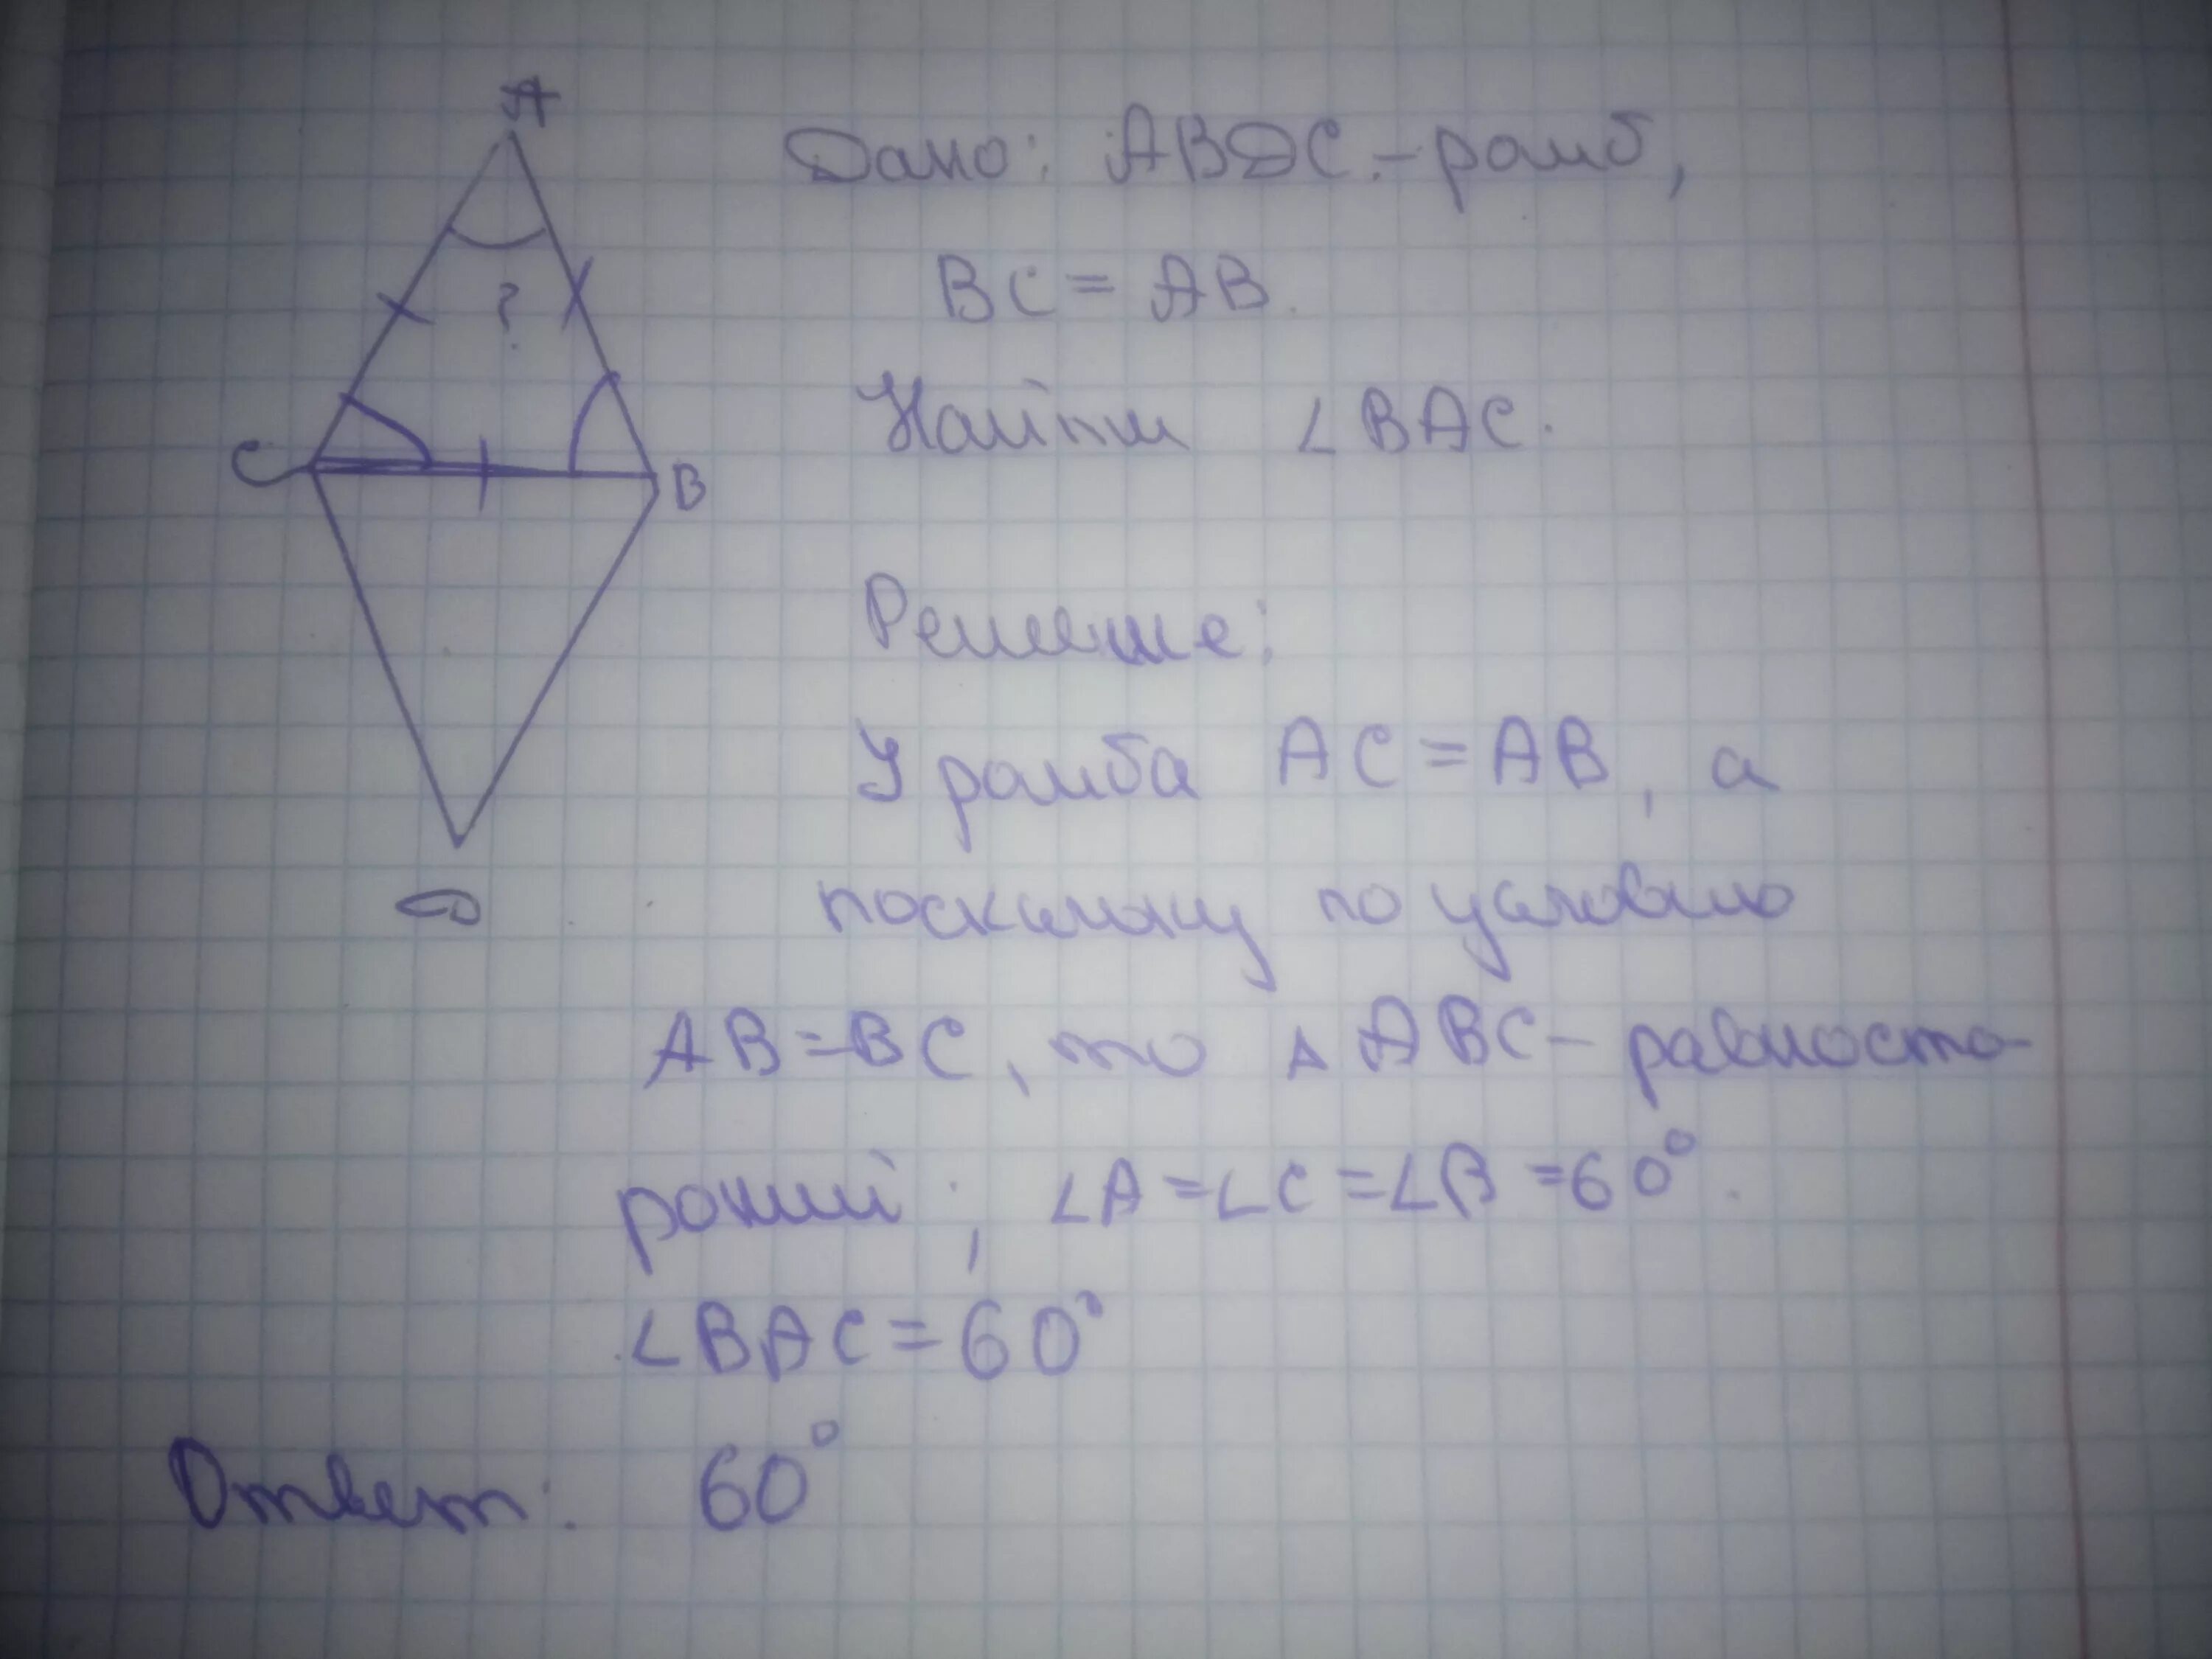 A
?
C
B
D
Дано: ABDC - ромб,
BC = AB.
Найти ∠BAC.
Решение:
У ромба AC = AB, а
поскольку по условию
AB = BC, то △ ABC - равносто-
ронний, ∠A = ∠C = ∠B = 60°.
∠BAC = 60°
Ответ: 60°